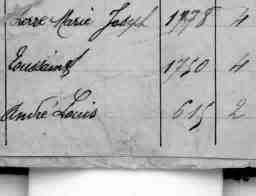 Pierre Marie Joseph 1778 4
Toussaint 1750 4
André Louis 615 2